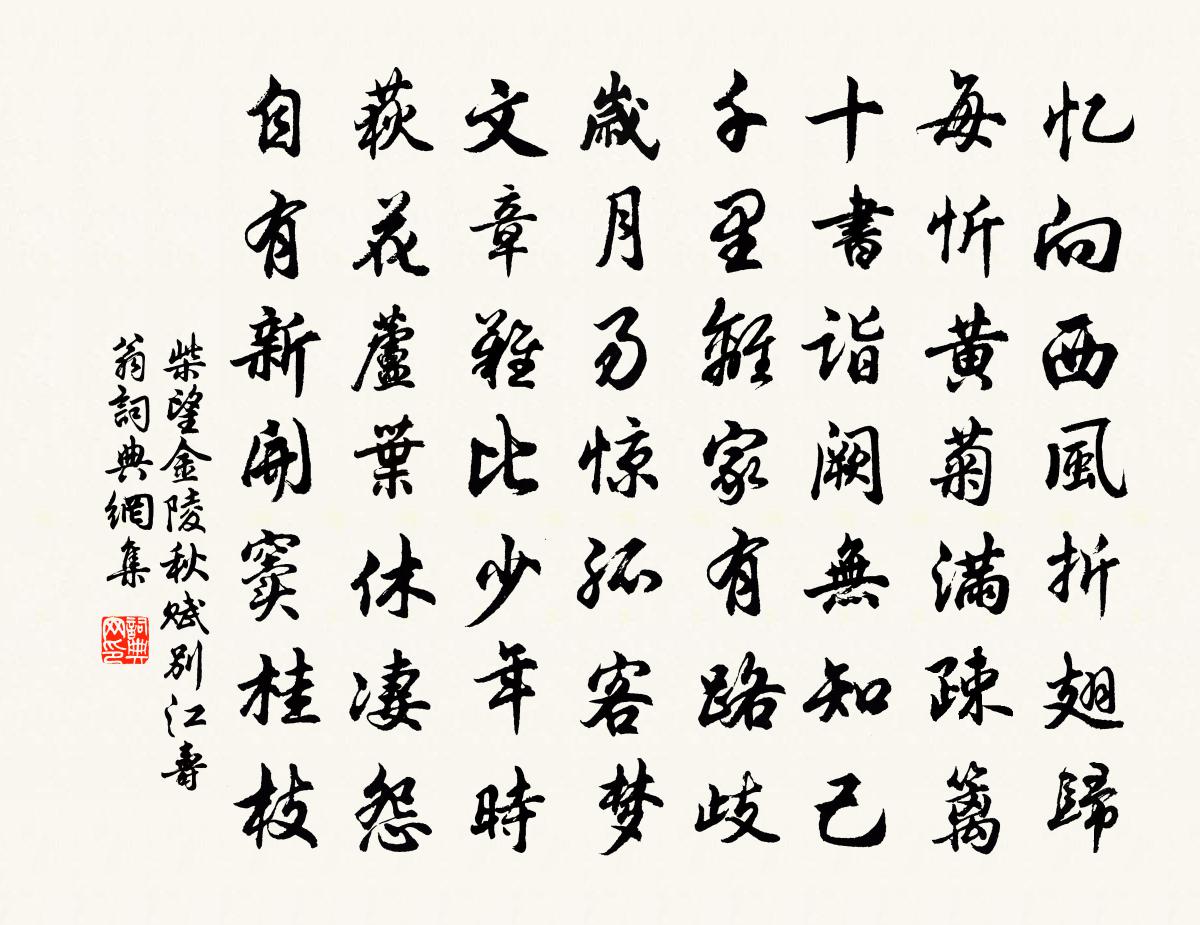 忆向西風折翅歸
每忻黄菊满疎篱
十書詣阙無知己
千里離家有路歧
歲月易惊孤客梦
文章難比少年時
荻花蘆葉休凄怨
自有新開窦桂枝
柴望金陵秋赋别江壽
翁詞典網集
詞典网印